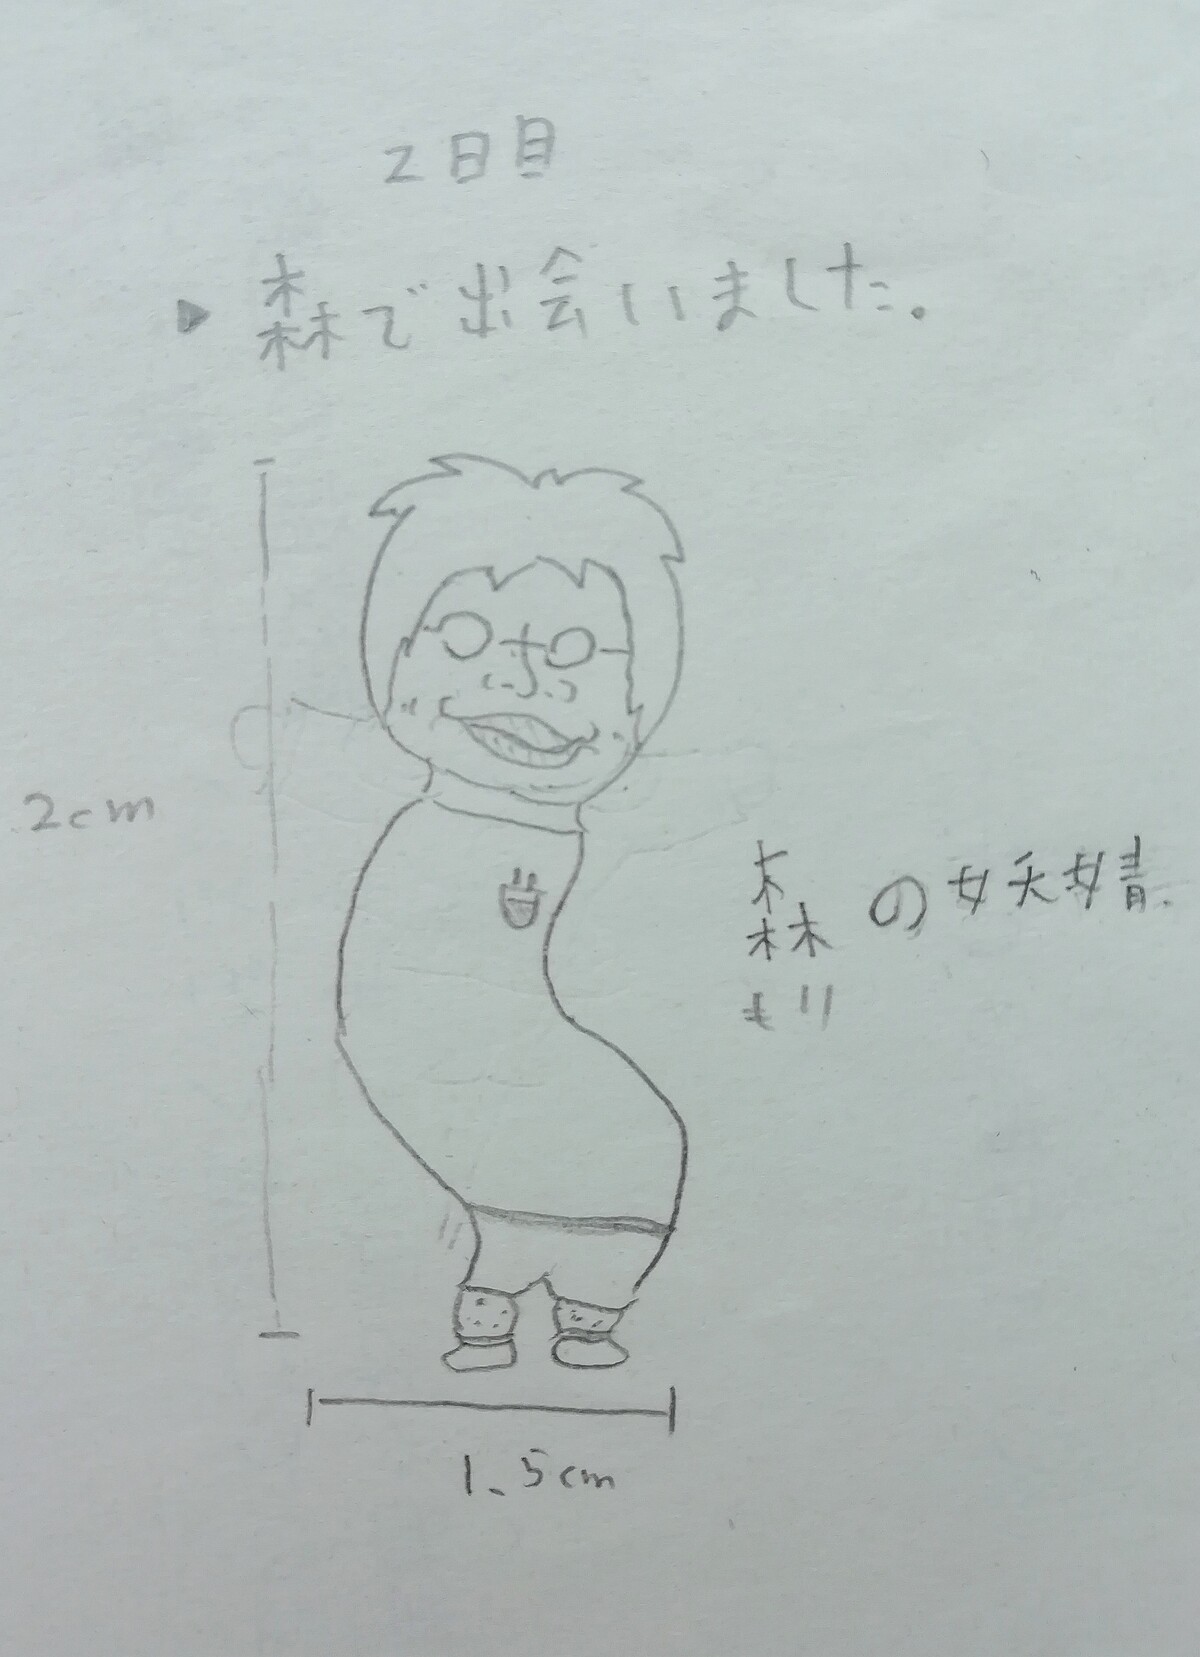 2日目
▶ 森で出会いました。
2cm
森の妖婧.
もり
1.5cm